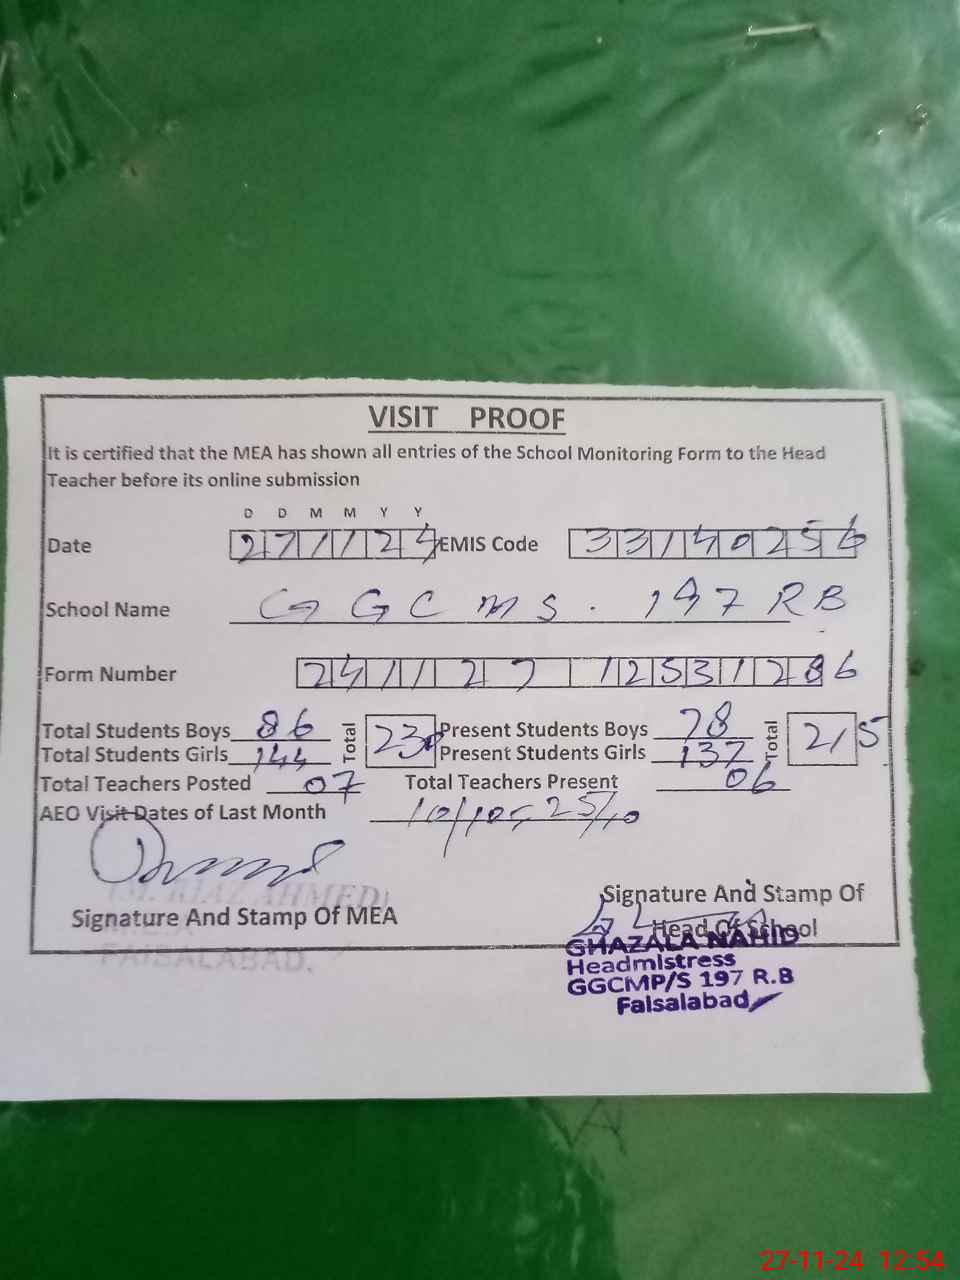 VISIT PROOF
It is certified that the MEA has shown all entries of the School Monitoring Form to the Head
Teacher before its online submission
D D M M Y Y
Date 271124 EMIS Code 33140256
School Name GGCMS. 197 RB
Form Number 241127 12531286
Total Students Boys 86 Total 230 Present Students Boys 78 Total 215
Total Students Girls 144 Present Students Girls 137
Total Teachers Posted 07 Total Teachers Present 06
AEO Visit Dates of Last Month 10/10, 25/10
(M. RIAZ AHMED)
Signature And Stamp Of MEA
FAISALABAD.
Signature And Stamp Of
Head Of School
GHAZALA NAHID
Headmistress
GGCMP/S 197 R.B
Faisalabad
27-11-24 12:54